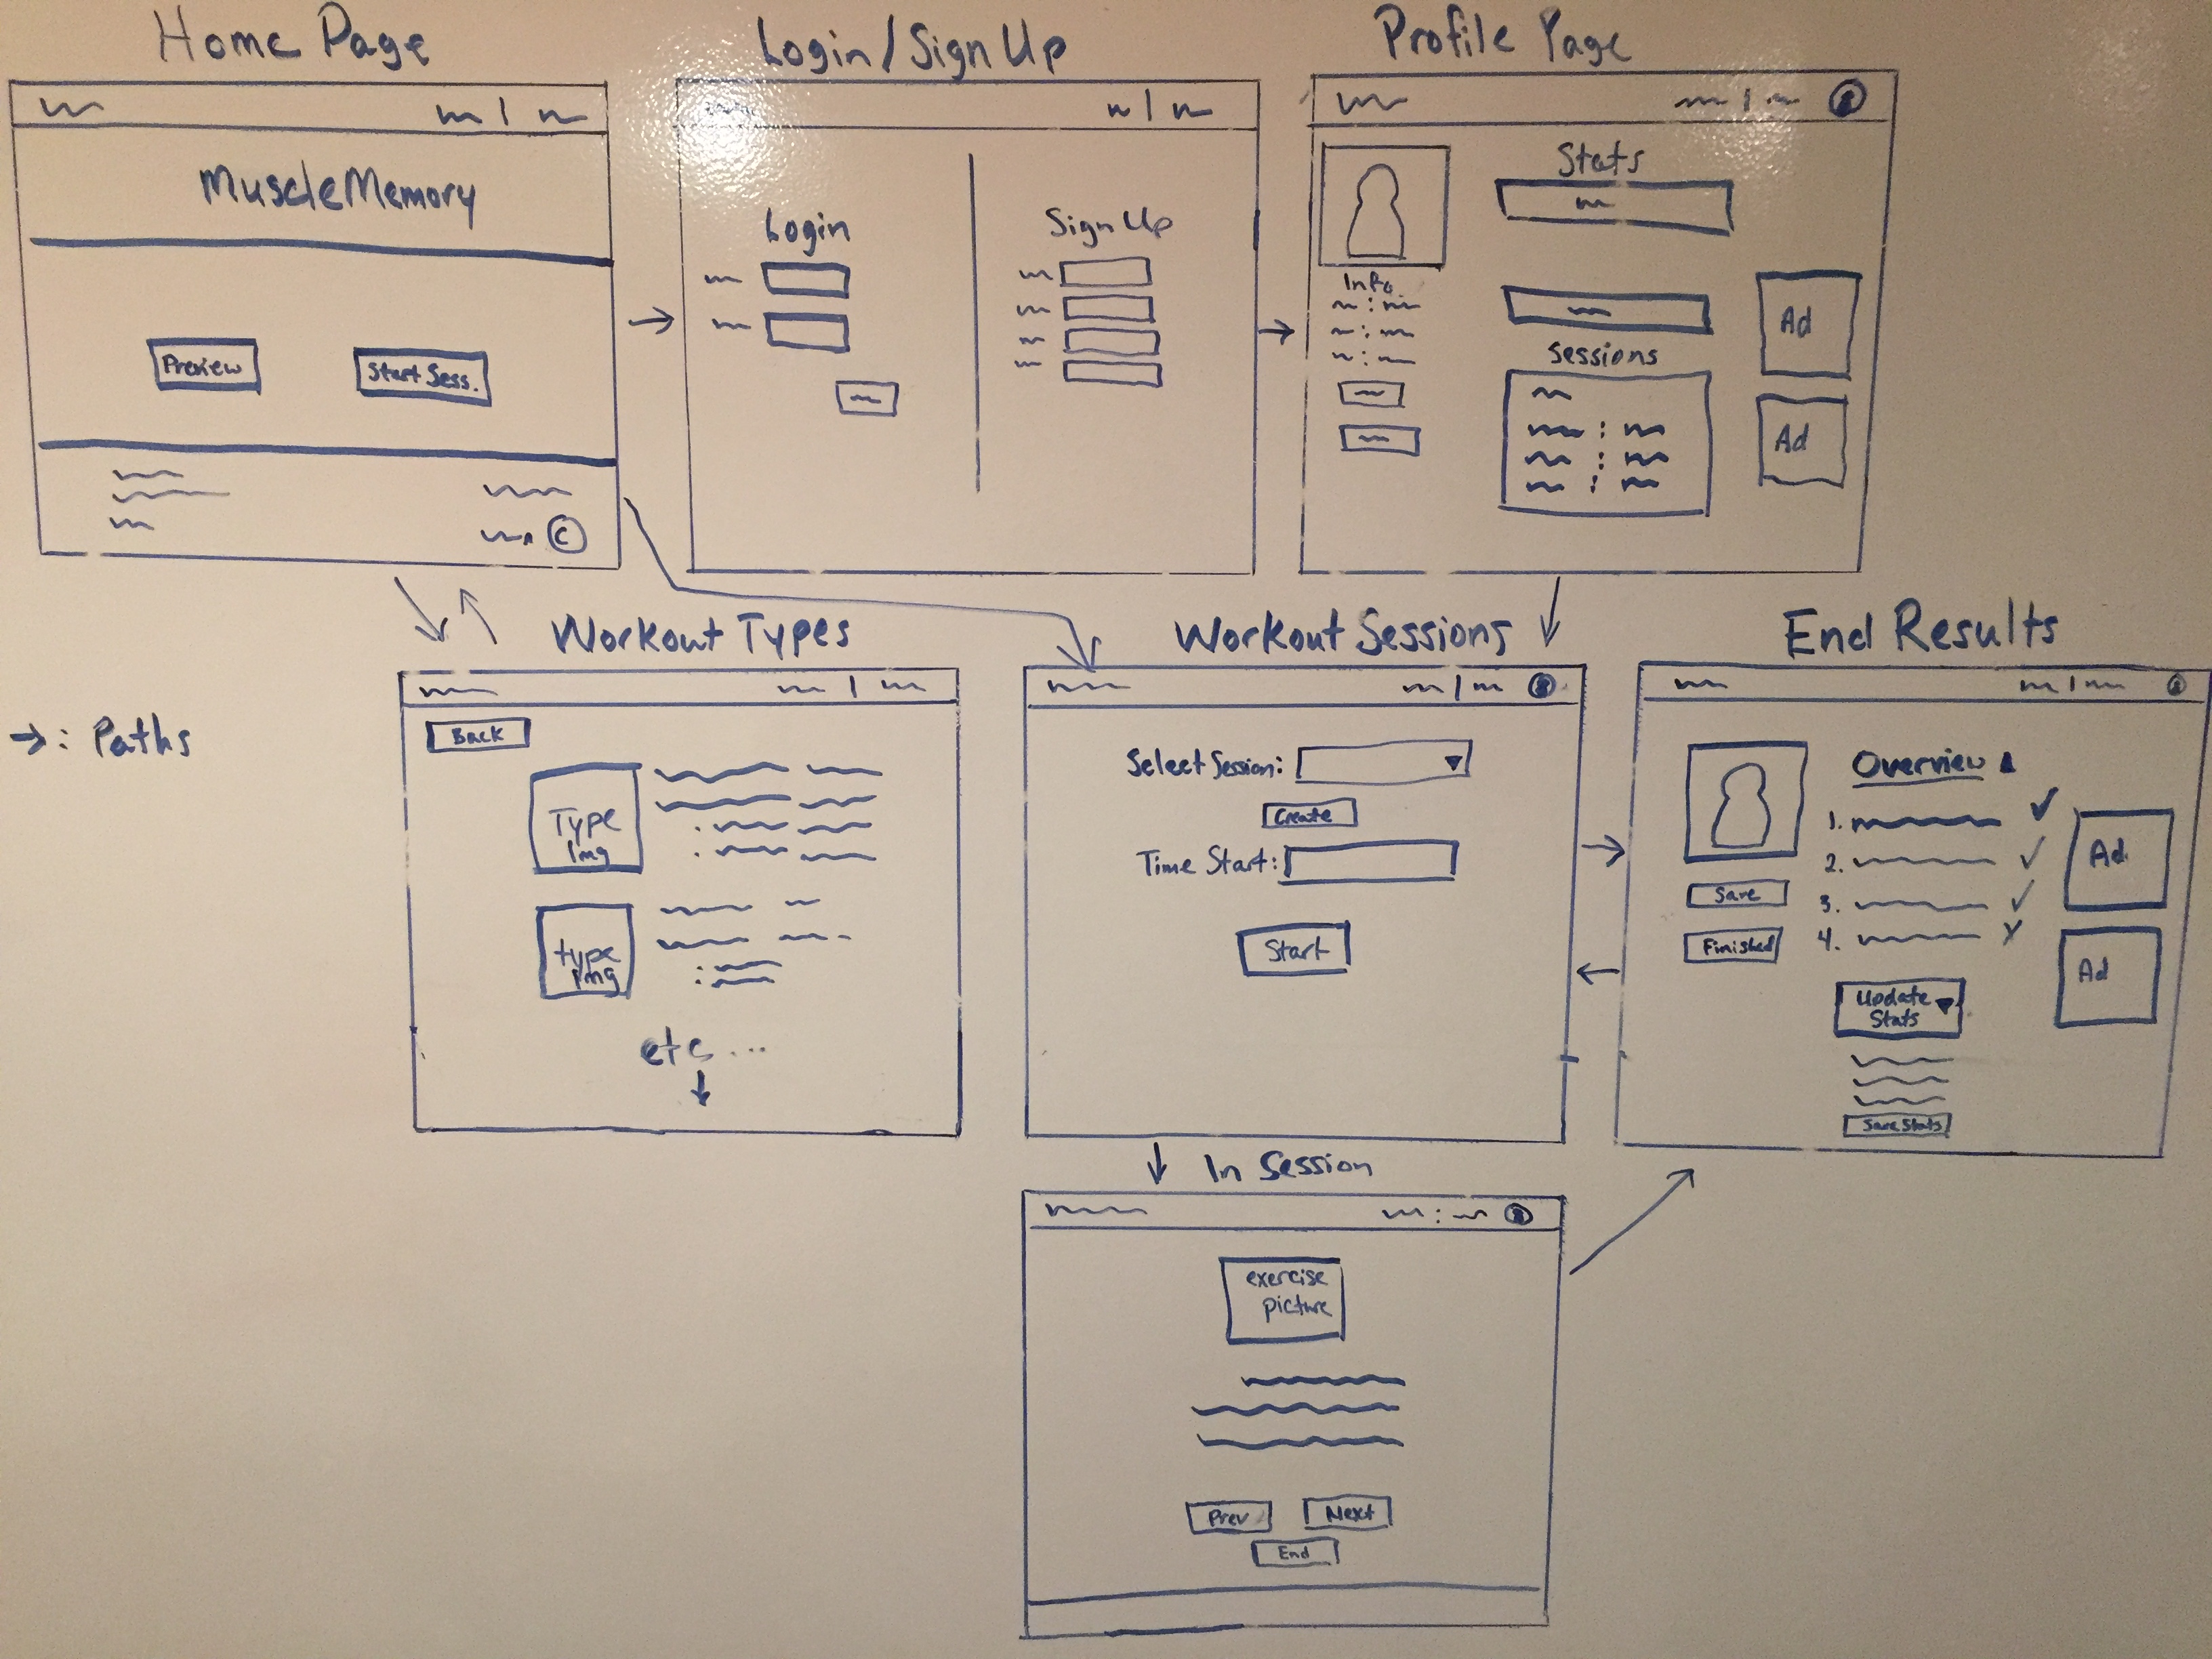 Home Page
MuscleMemory
Preview
Start Sess.
©
Login/Sign Up
Login
Sign Up
Profile Page
Stats
Info.
Sessions
Ad
Ad
→: Paths
Workout Types
Back
Type
Img
type
Img
etc...
Workout Sessions
Select Session:
Create
Time Start:
Start
End Results
Overview
1.
2.
3.
4.
Save
Finished
Update
Stats
Save Stats
Ad
Ad
In Session
exercise
picture
Prev
Next
End